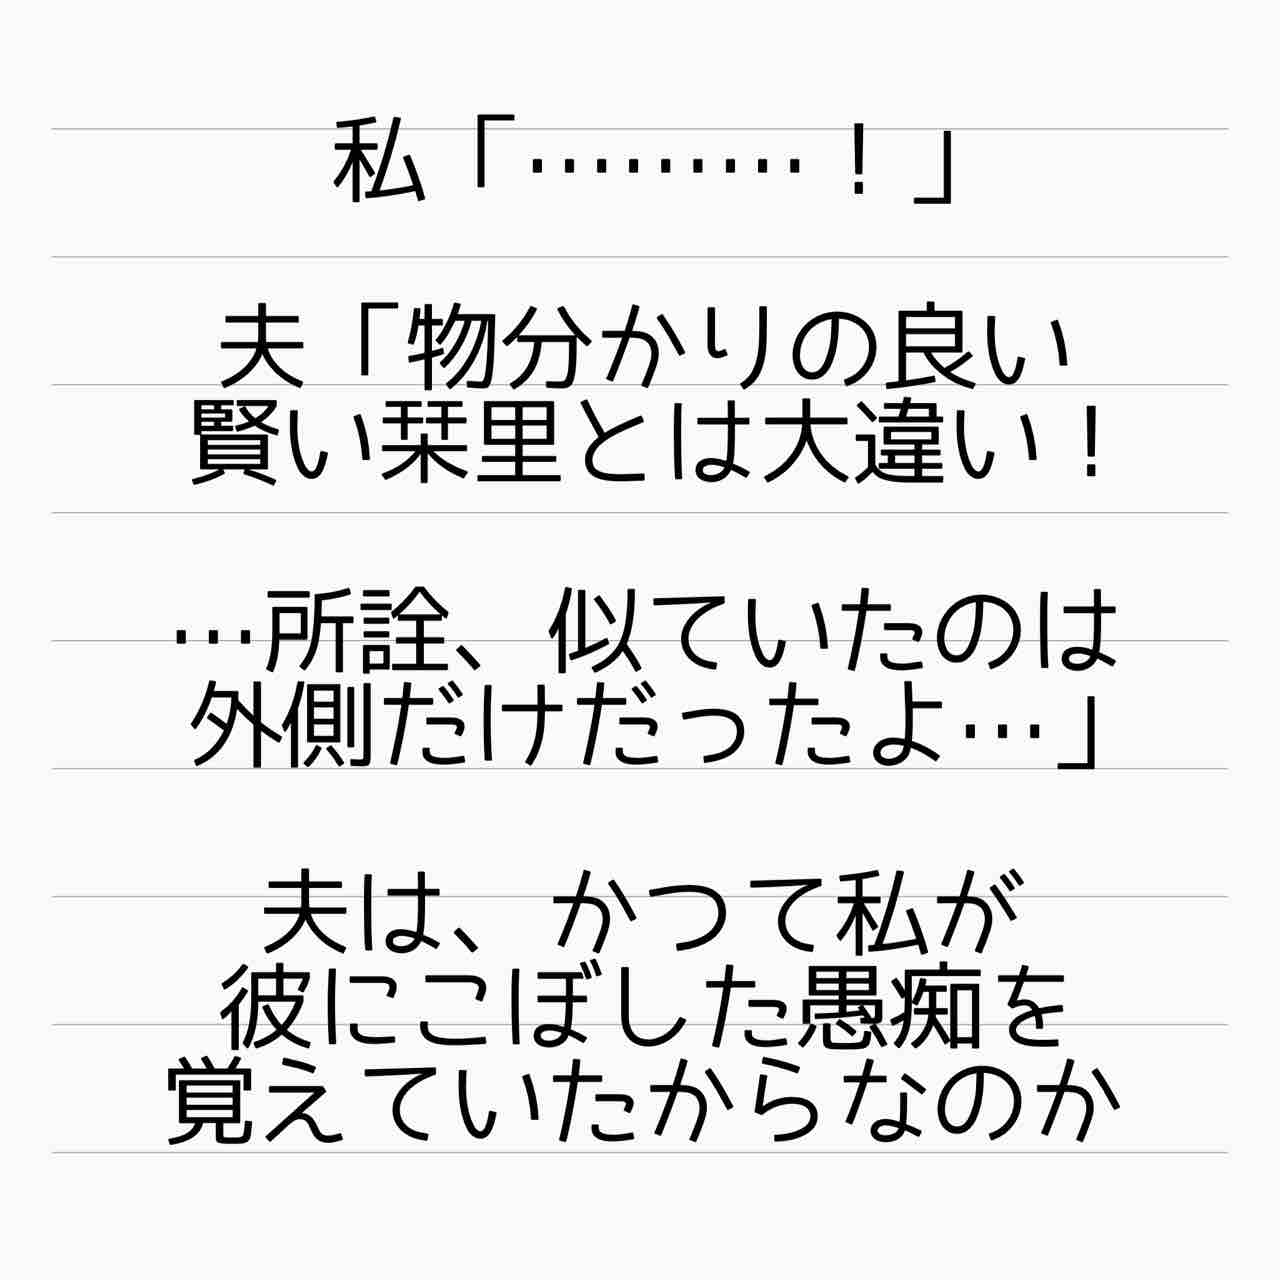 私「………！」
夫「物分かりの良い
賢い栞里とは大違い！
…所詮、似ていたのは
外側だけだったよ…」
夫は、かつて私が
彼にこぼした愚痴を
覚えていたからなのか